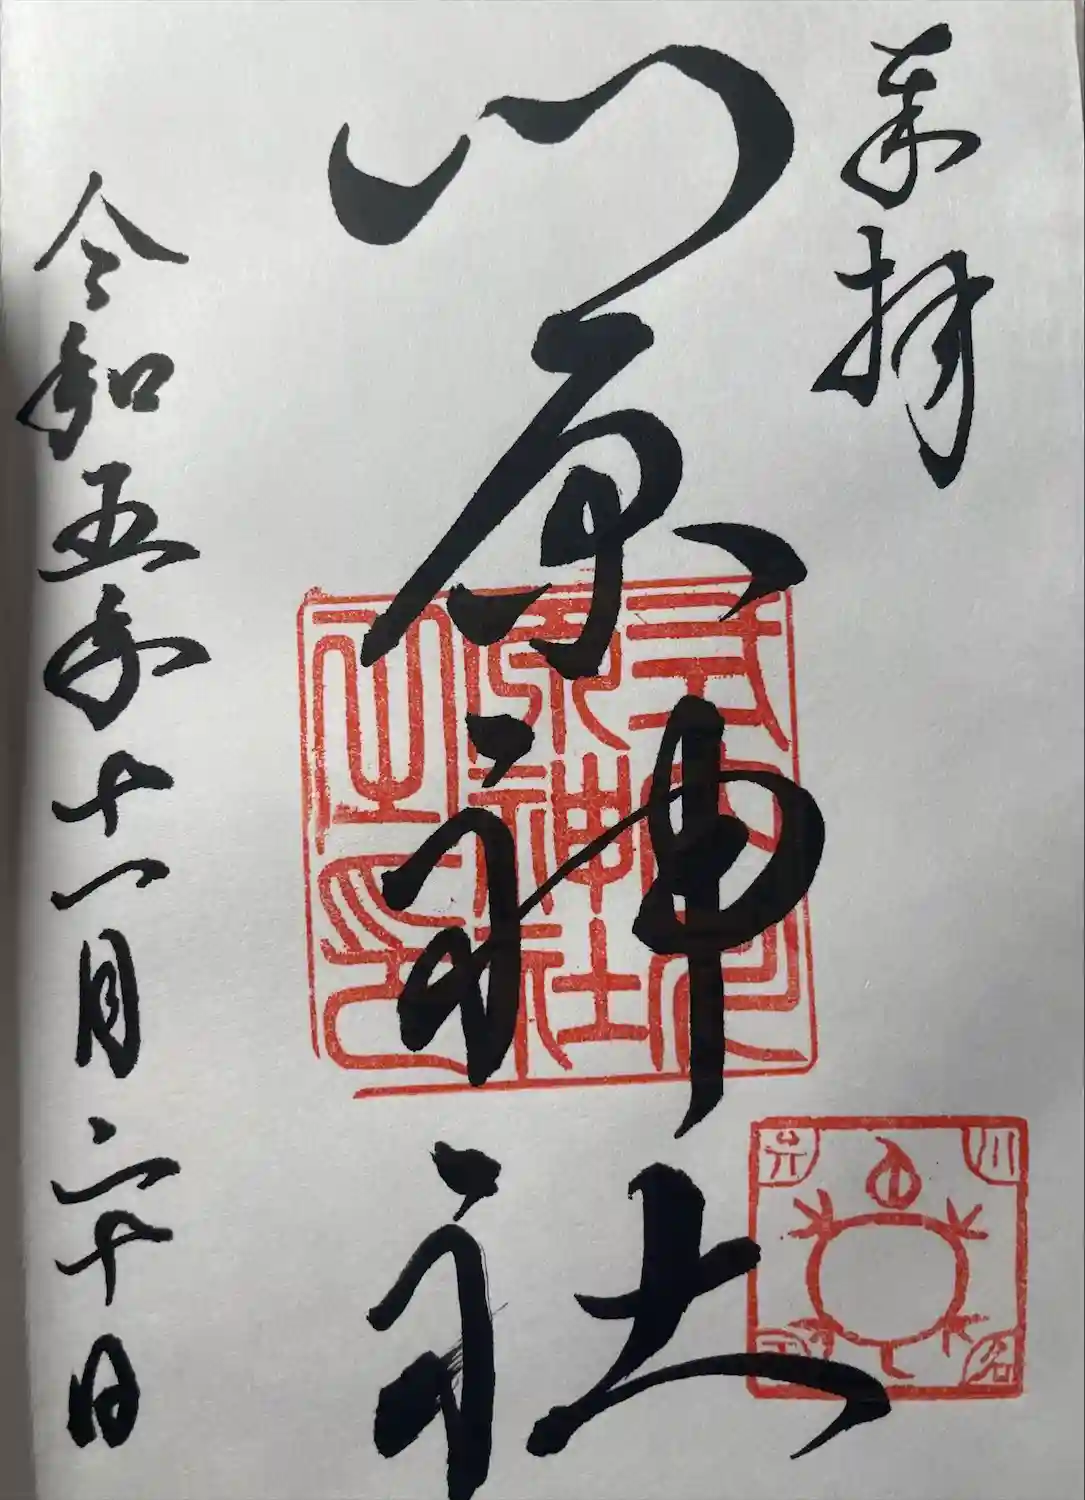 奉拝
川原神社
式内川
原神社
之印
川名
弁
令和五年十一月二十日